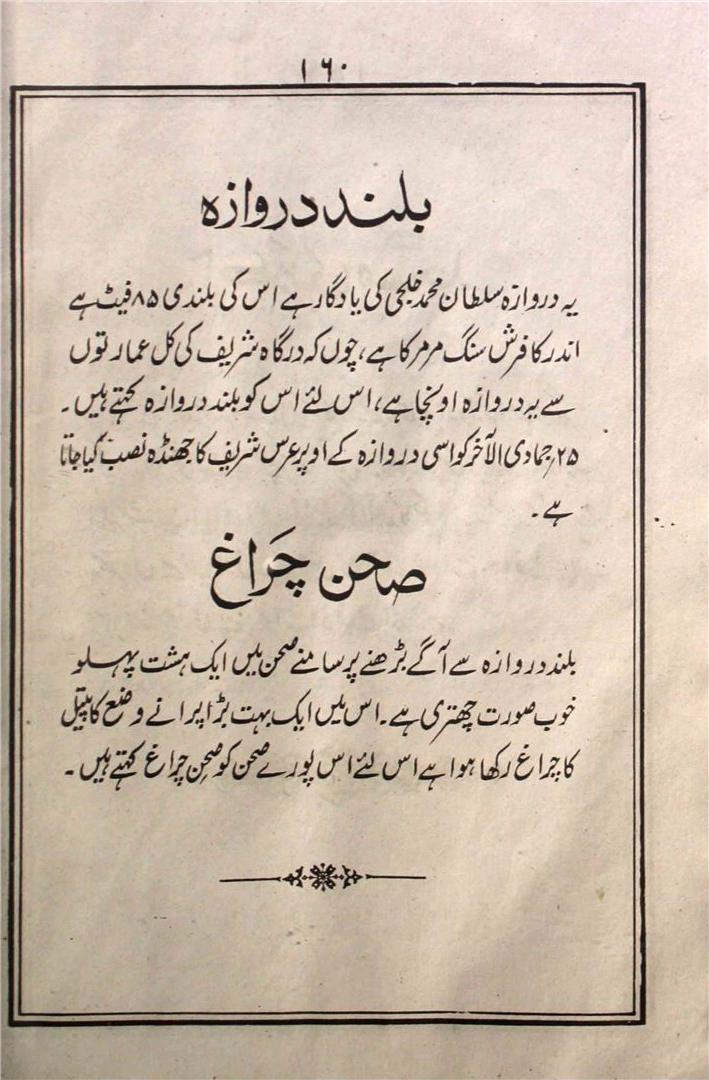 ۱۶۰
بلند دروازہ
یہ دروازہ سلطان محمد خلجی کی یادگار ہے اس کی بلندی ۸۵ فیٹ ہے
اندر کا فرش سنگ مرمر کا ہے، چوں کہ درگاہ شریف کی کل عمارتوں
سے یہ دروازہ اونچا ہے، اس لئے اس کو بلند دروازہ کہتے ہیں۔
۲۵؍جمادی الآخر کو اسی دروازہ کے اوپر عرس شریف کا جھنڈہ نصب کیا جاتا
ہے۔
صحن چَراغ
بلند دروازہ سے آگے بڑھنے پر سامنے صحن میں ایک ہشت پہلو
خوب صورت چھتری ہے۔ اس میں ایک بہت بڑا پرانے وضع کا پیتل
کا چراغ رکھا ہوا ہے اس لئے اس پورے صحن کو صحنِ چراغ کہتے ہیں۔